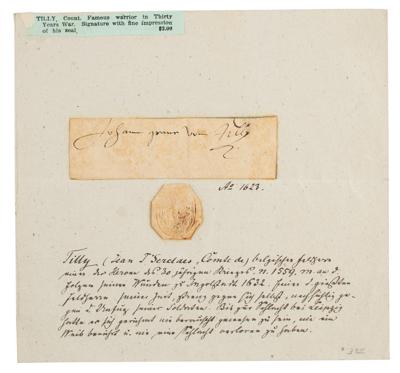 TILLY, Count. Famous warrior in Thirty
Years War. Signature with fine impression
of his seal. $3.00
Johann grave von Tilly
Ao 1623.
Tilly (Jean T'Serclaes, Comte de) belgischer Feldherr
einer der Heroen des 30 jährigen Krieges, n. 1559. m. an d.
Folgen seiner Wunden zu Ingolstadt 1632. Einer d. größten
Feldherren seiner Zeit, streng gegen sich selbst, nachsichtig ge-
gen seiner Soldaten. Bis zur Schlacht bei Leipzig
hatte er sich gerühmt nie berauscht gewesen zu sein, nie ein
Weib berührt u. nie eine Schlacht verloren zu haben.